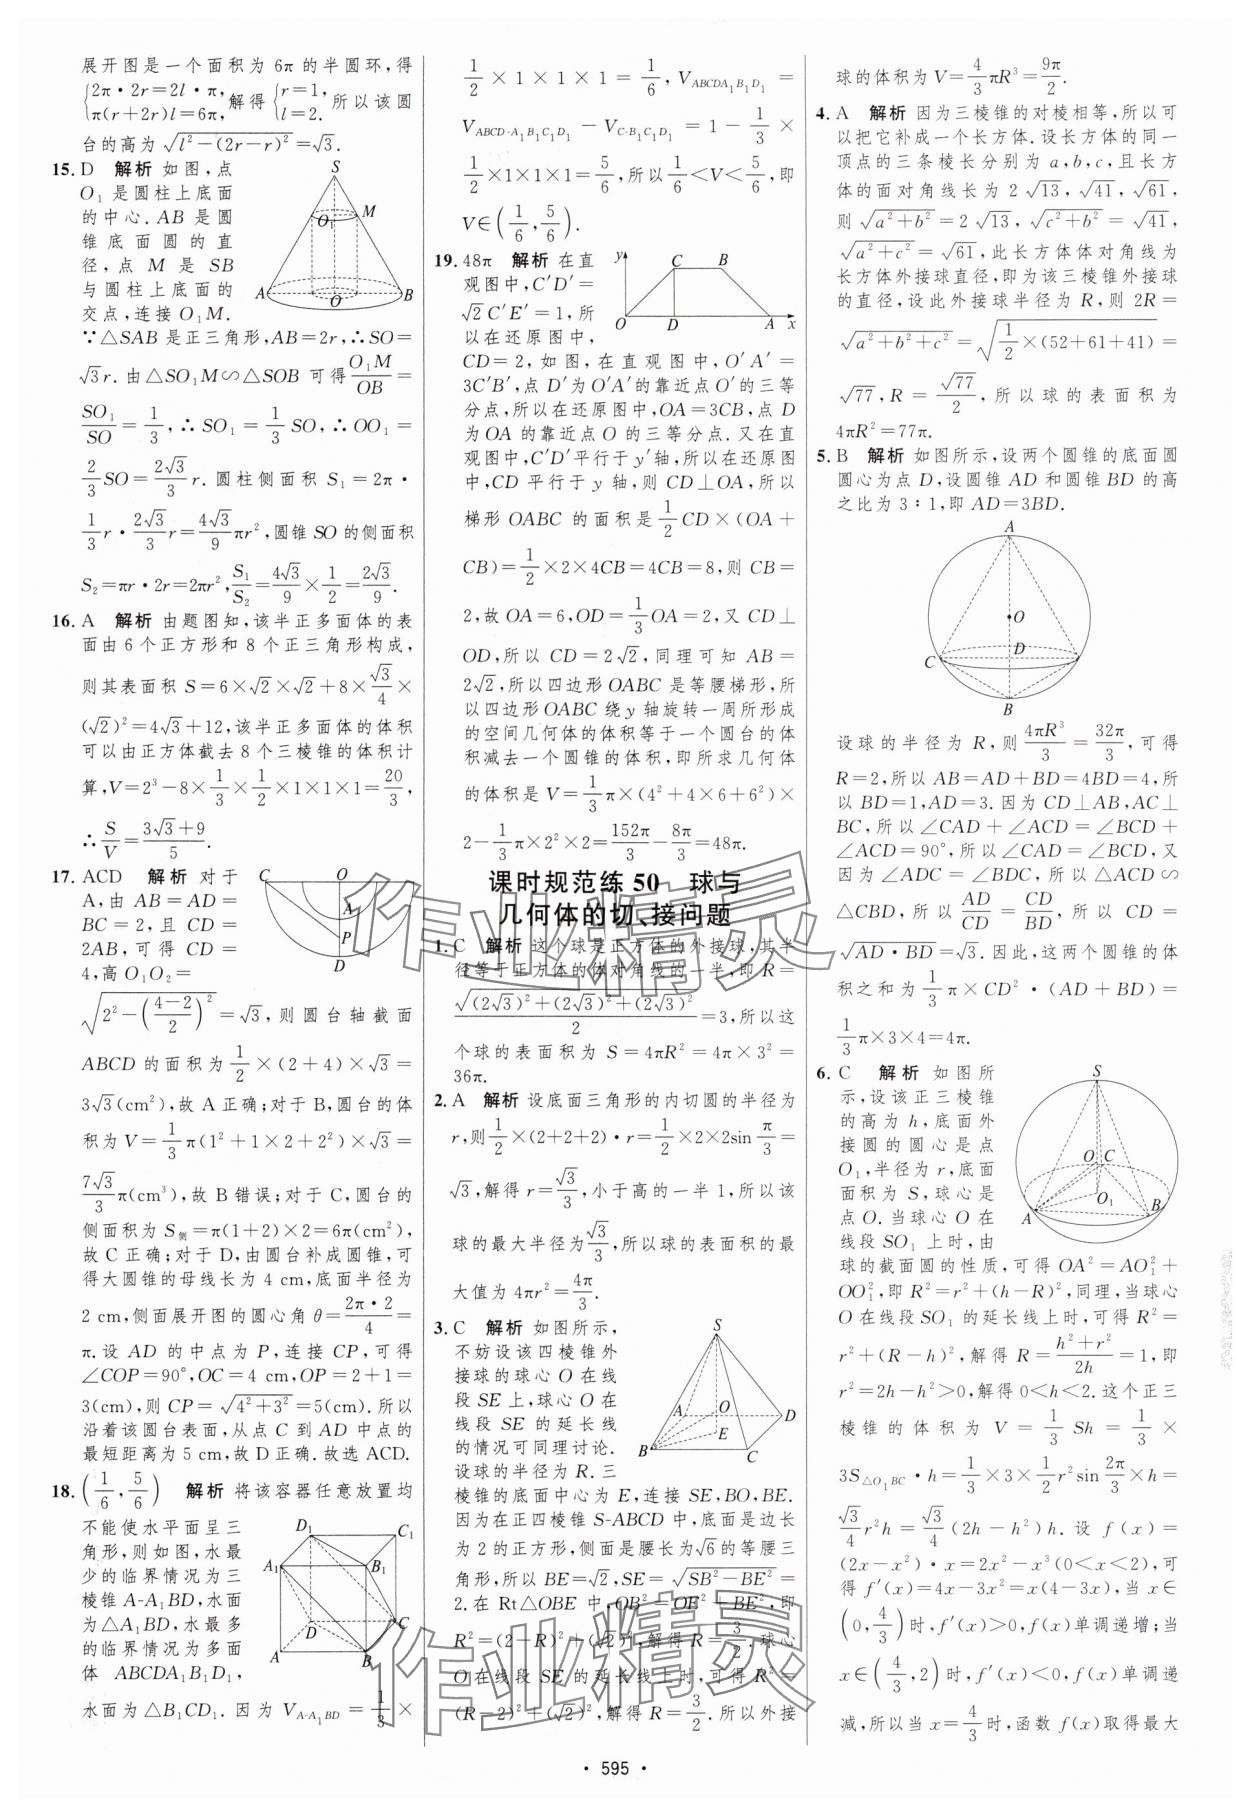 展开图是一个面积为 6π 的半圆环,得
{2π·2r=2l·π, π(r+2r)l=6π, 解得 {r=1, l=2. 所以该圆
台的高为 √(l²-(2r-r)²)=√3.
15. D 解析 如图,点
O₁是圆柱上底面
的中心.AB 是圆
锥底面圆的直
径,点 M 是 SB
与圆柱上底面的
交点,连接 O₁M.
∵△SAB 是正三角形,AB=2r,∴SO=
√3r.由△SO₁M∽△SOB 可得 O₁M/OB=
SO₁/SO=1/3,∴SO₁=1/3 SO,∴OO₁=
2/3 SO=2√3/3 r.圆柱侧面积 S₁=2π·
1/3 r·2√3/3 r=4√3/9 πr²,圆锥 SO 的侧面积
S₂=πr·2r=2πr²,S₁/S₂=4√3/9×1/2=2√3/9.
16. A 解析 由题图知,该半正多面体的表
面由 6 个正方形和 8 个正三角形构成,
则其表面积 S=6×√2×√2+8×√3/4×
(√2)²=4√3+12,该半正多面体的体积
可以由正方体截去 8 个三棱锥的体积计
算,V=2³-8×1/3×1/2×1×1×1=20/3,
∴S/V=(3√3+9)/5.
17. ACD 解析 对于
A,由 AB=AD=
BC=2,且 CD=
2AB,可得 CD=
4,高 O₁O₂=
√(2²-((4-2)/2)²)=√3,则圆台轴截面
ABCD 的面积为 1/2×(2+4)×√3=
3√3(cm²),故 A 正确;对于 B,圆台的体
积为 V=1/3π(1²+1×2+2²)×√3=
7√3/3 π(cm³),故 B 错误;对于 C,圆台的
侧面积为 S侧=π(1+2)×2=6π(cm²),
故 C 正确;对于 D,由圆台补成圆锥,可
得大圆锥的母线长为 4 cm,底面半径为
2 cm,侧面展开图的圆心角 θ=2π·2/4=
π.设 AD 的中点为 P,连接 CP,可得
∠COP=90°,OC=4 cm,OP=2+1=
3(cm),则 CP=√(4²+3²)=5(cm).所以
沿着该圆台表面,从点 C 到 AD 中点的
最短距离为 5 cm,故 D 正确.故选 ACD.
18. (1/6,5/6) 解析 将该容器任意放置均
不能使水平面呈三
角形,则如图,水最
少的临界情况为三
棱锥 A-A₁BD,水面
为△A₁BD,水最多
的临界情况为多面
体 ABCDA₁B₁D₁,
水面为△B₁CD₁.因为 V_{A-A₁BD}=1/3×
1/2×1×1×1=1/6,V_{ABCDA₁B₁D₁}=
V_{ABCD-A₁B₁C₁D₁}-V_{C-B₁C₁D₁}=1-1/3×
1/2×1×1×1=5/6,所以 1/6<V<5/6,即
V∈(1/6,5/6).
19. 48π 解析 在直
观图中,C′D′=
√2C′E′=1,所
以在还原图中,
CD=2,如图,在直观图中,O′A′=
3C′B′,点 D′为 O′A′的靠近点 O′的三等
分点,所以在还原图中,OA=3CB,点 D
为 OA 的靠近点 O 的三等分点.又在直
观图中,C′D′平行于 y′轴,所以在还原图
中,CD 平行于 y 轴,则 CD⊥OA,所以
梯形 OABC 的面积是 1/2 CD×(OA+
CB)=1/2×2×4CB=4CB=8,则 CB=
2,故 OA=6,OD=1/3 OA=2,又 CD⊥
OD,所以 CD=2√2,同理可知 AB=
2√2,所以四边形 OABC 是等腰梯形,所
以四边形 OABC 绕 y 轴旋转一周所形成
的空间几何体的体积等于一个圆台的体
积减去一个圆锥的体积,即所求几何体
的体积是 V=1/3π×(4²+4×6+6²)×
2-1/3π×2²×2=152π/3-8π/3=48π.
课时规范练 50 球与
几何体的切、接问题
1. C 解析 这个球是正方体的外接球,其半
径等于正方体的体对角线的一半,即 R=
√((2√3)²+(2√3)²+(2√3)²)/2=3,所以这
个球的表面积为 S=4πR²=4π×3²=
36π.
2. A 解析 设底面三角形的内切圆的半径为
r,则 1/2×(2+2+2)·r=1/2×2×2sin π/3=
√3,解得 r=√3/3,小于高的一半 1,所以该
球的最大半径为 √3/3,所以球的表面积的最
大值为 4πr²=4π/3.
3. C 解析 如图所示,
不妨设该四棱锥外
接球的球心 O 在线
段 SE 上,球心 O 在
线段 SE 的延长线
的情况可同理讨论.
设球的半径为 R.三
棱锥的底面中心为 E,连接 SE,BO,BE.
因为在正四棱锥 S-ABCD 中,底面是边长
为 2 的正方形,侧面是腰长为√6的等腰三
角形,所以 BE=√2,SE=√(SB²-BE²)=
2.在 Rt△OBE 中,OB²=OE²-BE²,
R²=(2-R)²+(√2)²,解得 R=3/2.球心
O 在线段 SE 的延长线上时,可得 R²=
(R-2)²+(√2)²,解得 R=3/2.所以外接
球的体积为 V=4/3πR³=9π/2.
4. A 解析 因为三棱锥的对棱相等,所以可
以把它补成一个长方体.设长方体的同一
顶点的三条棱长分别为 a,b,c,且长方
体的面对角线长为 2√13,√41,√61,
则 √(a²+b²)=2√13,√(c²+b²)=√41,
√(a²+c²)=√61,此长方体体对角线为
长方体外接球直径,即为该三棱锥外接球
的直径,设此外接球半径为 R,则 2R=
√(a²+b²+c²)=√(1/2×(52+61+41))=
√77,R=√77/2,所以球的表面积为
4πR²=77π.
5. B 解析 如图所示,设两个圆锥的底面圆
圆心为点 D,设圆锥 AD 和圆锥 BD 的高
之比为 3∶1,即 AD=3BD.
设球的半径为 R,则 4πR³/3=32π/3,可得
R=2,所以 AB=AD+BD=4BD=4,所
以 BD=1,AD=3.因为 CD⊥AB,AC⊥
BC,所以∠CAD+∠ACD=∠BCD+
∠ACD=90°,所以∠CAD=∠BCD.又
因为∠ADC=∠BDC,所以△ACD∽
△CBD,所以 AD/CD=CD/BD,所以 CD=
√(AD·BD)=√3.因此,这两个圆锥的体
积之和为 1/3π×CD²·(AD+BD)=
1/3π×3×4=4π.
6. C 解析 如图所
示,设该正三棱锥
的高为 h,底面外
接圆的圆心是点
O₁,半径为 r,底面
面积为 S,球心是
点 O.当球心 O 在
线段 SO₁ 上时,由
球的截面圆的性质,可得 OA²=AO₁²+
OO₁²,即 R²=r²+(h-R)²,同理,当球心
O 在线段 SO₁ 的延长线上时,可得 R²=
r²+(R-h)²,解得 R=(h²+r²)/2h=1,即
r²=2h-h²>0,解得 0<h<2.这个正三
棱锥的体积为 V=1/3 Sh=1/3×
3S_{△O₁BC}·h=1/3×3×1/2 r²sin 2π/3×h=
√3/4 r²h=√3/4(2h-h²)h.设 f(x)=
(2x-x²)·x=2x²-x³(0<x<2),可
得 f′(x)=4x-3x²=x(4-3x),当 x∈
(0,4/3)时,f′(x)>0,f(x)单调递增;当
x∈(4/3,2)时,f′(x)<0,f(x)单调递
减,所以当 x=4/3时,函数 f(x)取得最大
· 595 ·
作业精灵
作业精灵